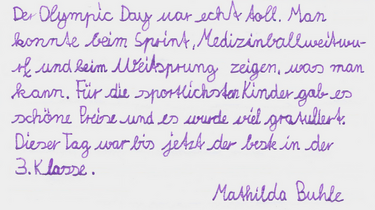 Der Olympic Day war echt toll. Man
konnte beim Sprint, Medizinballweitwu-
rf und beim Weitsprung zeigen, was man
kann. Für die sportlichsten Kinder gab es
schöne Preise und es wurde viel gratuliert.
Dieser Tag war bis jetzt der beste in der
3. Klasse.
Mathilda Buhle